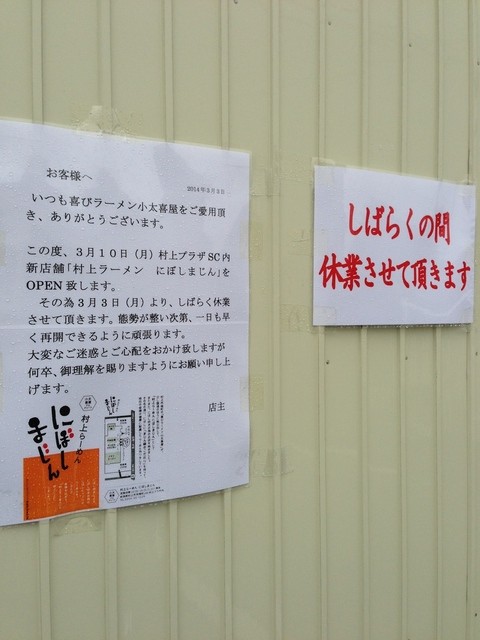 お客様へ
2014年3月2日
いつも喜びラーメン小太喜屋をご愛用頂
き、ありがとうございます。
この度、3月10日(月)村上プラザSC内
新店舗「村上ラーメン　にぼしまじん」を
OPEN致します。
その為3月3日(月)より、しばらく休業
させて頂きます。能勢が整い次第、一日も早
く再開できるように頑張ります。
大変なご迷惑とご心配をおかけ致しますが
何卒、御理解を賜りますようにお願い申し上
げます。
店主
村上らーめん
にぼし
まじん
しばらくの間
休業させて頂きます